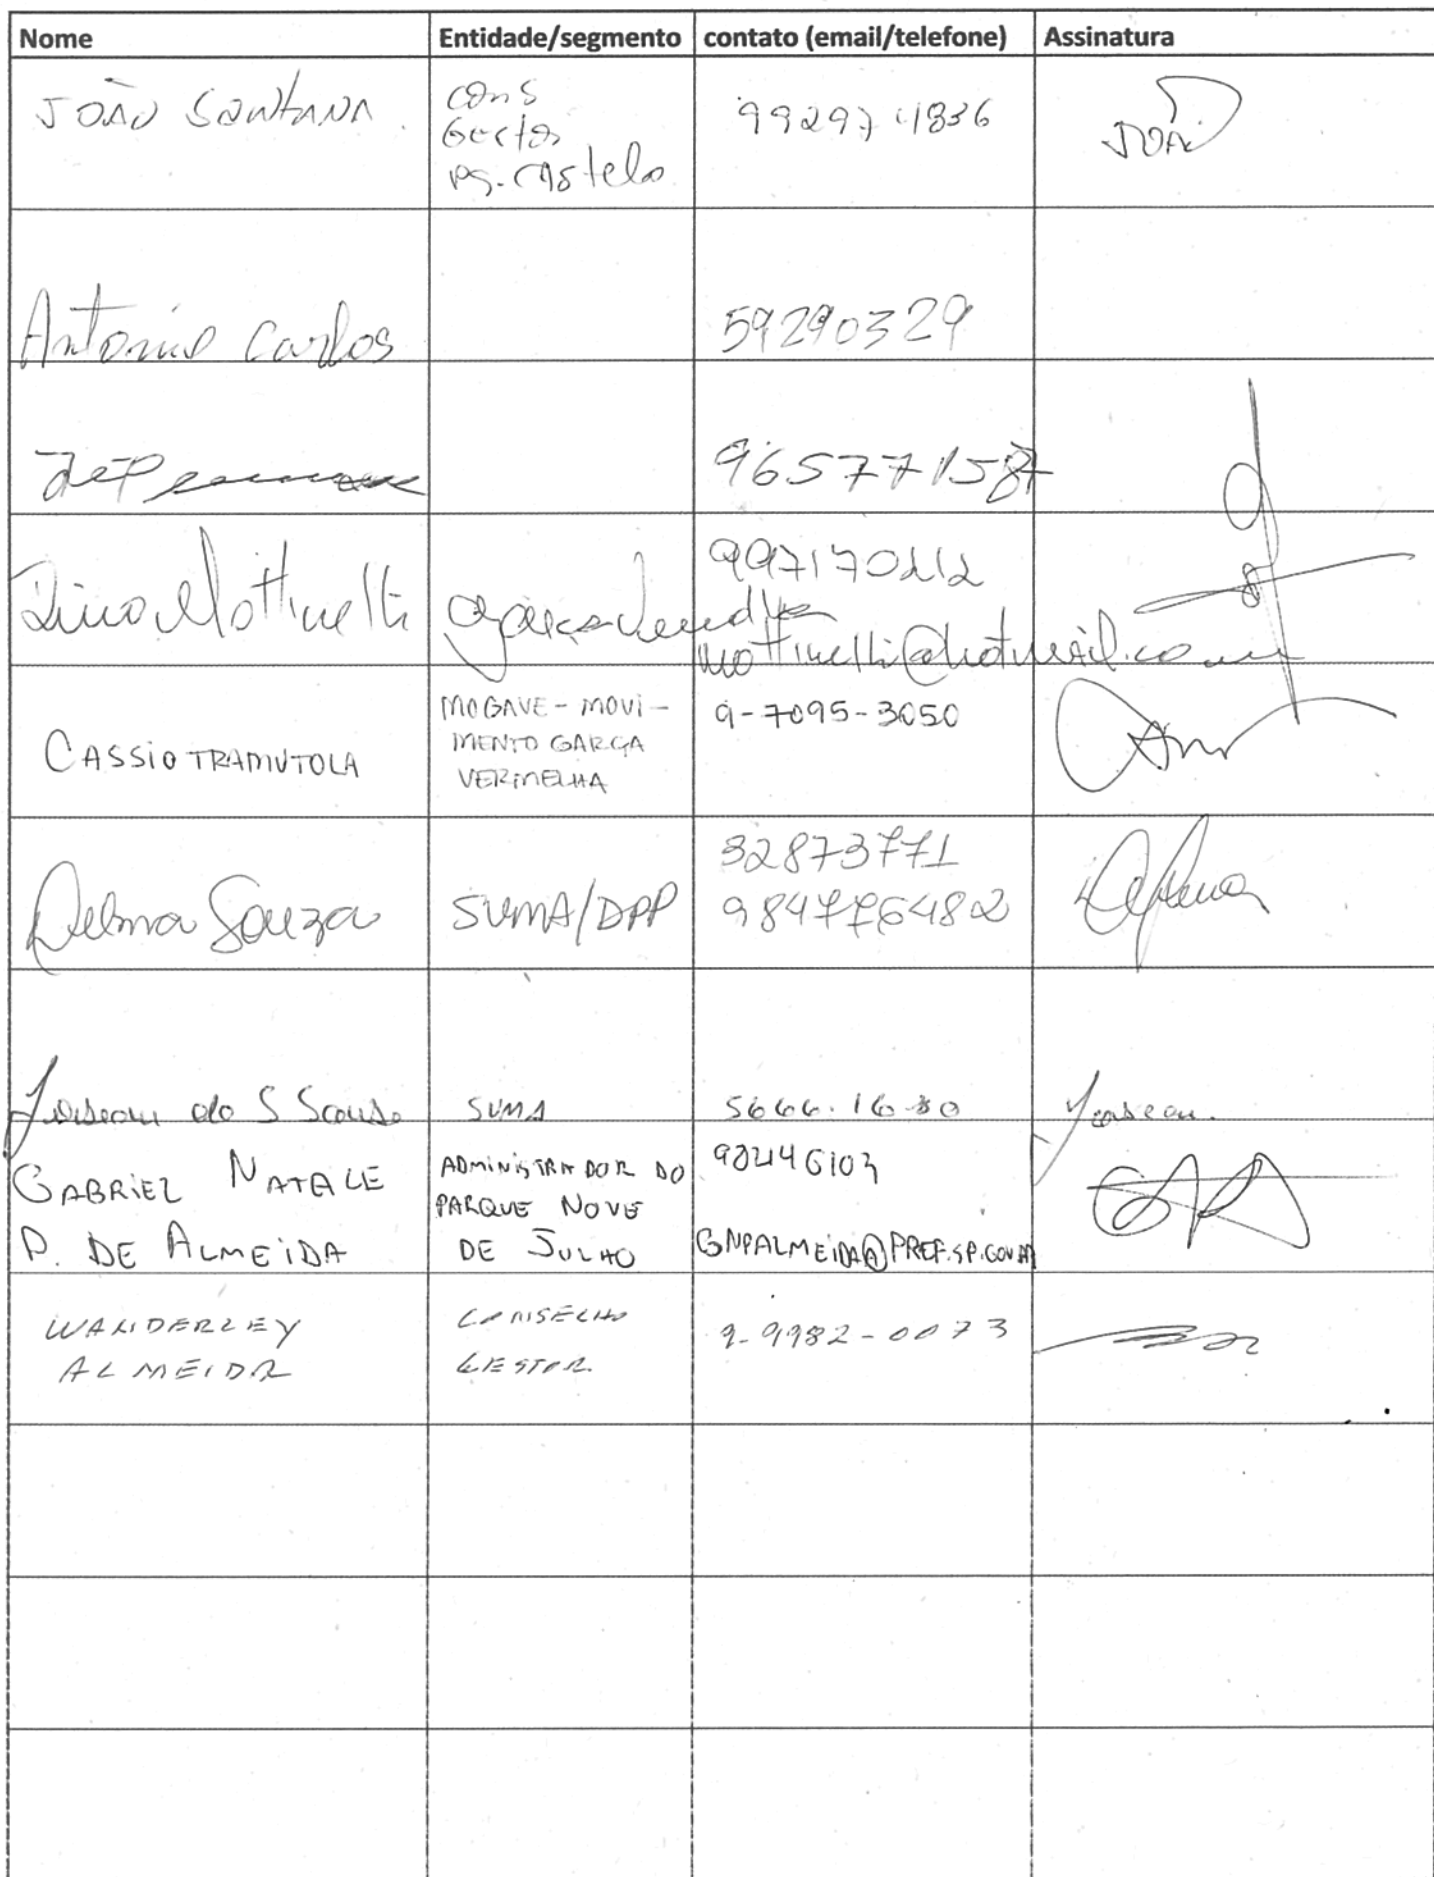 Nome Entidade/segmento contato (email/telefone) Assinatura
JOÃO SANTANA
cons
Gestor
PQ. CAStelo
JOÃO
Antonio Carlos 59290329
965771587
Mottinelli
997170212
mottinelli@hotmail.com
CASSIO TRAMUTOLA
MOGAVE - MOVI-
MENTO GARÇA
VERMELHA
9-7095-3050
Delma Souza
SUMA/DPP
32873771
984776482
SUMA
GABRIEL NATALE
P. DE ALMEIDA
ADMINISTRADOR DO
PARQUE NOVE
DE JULHO
GNPALMEIDA@PREF.SP.GOV.BR
WANDERLEY
ALMEIDA
CONSELHO
GESTOR
9-9982-0073